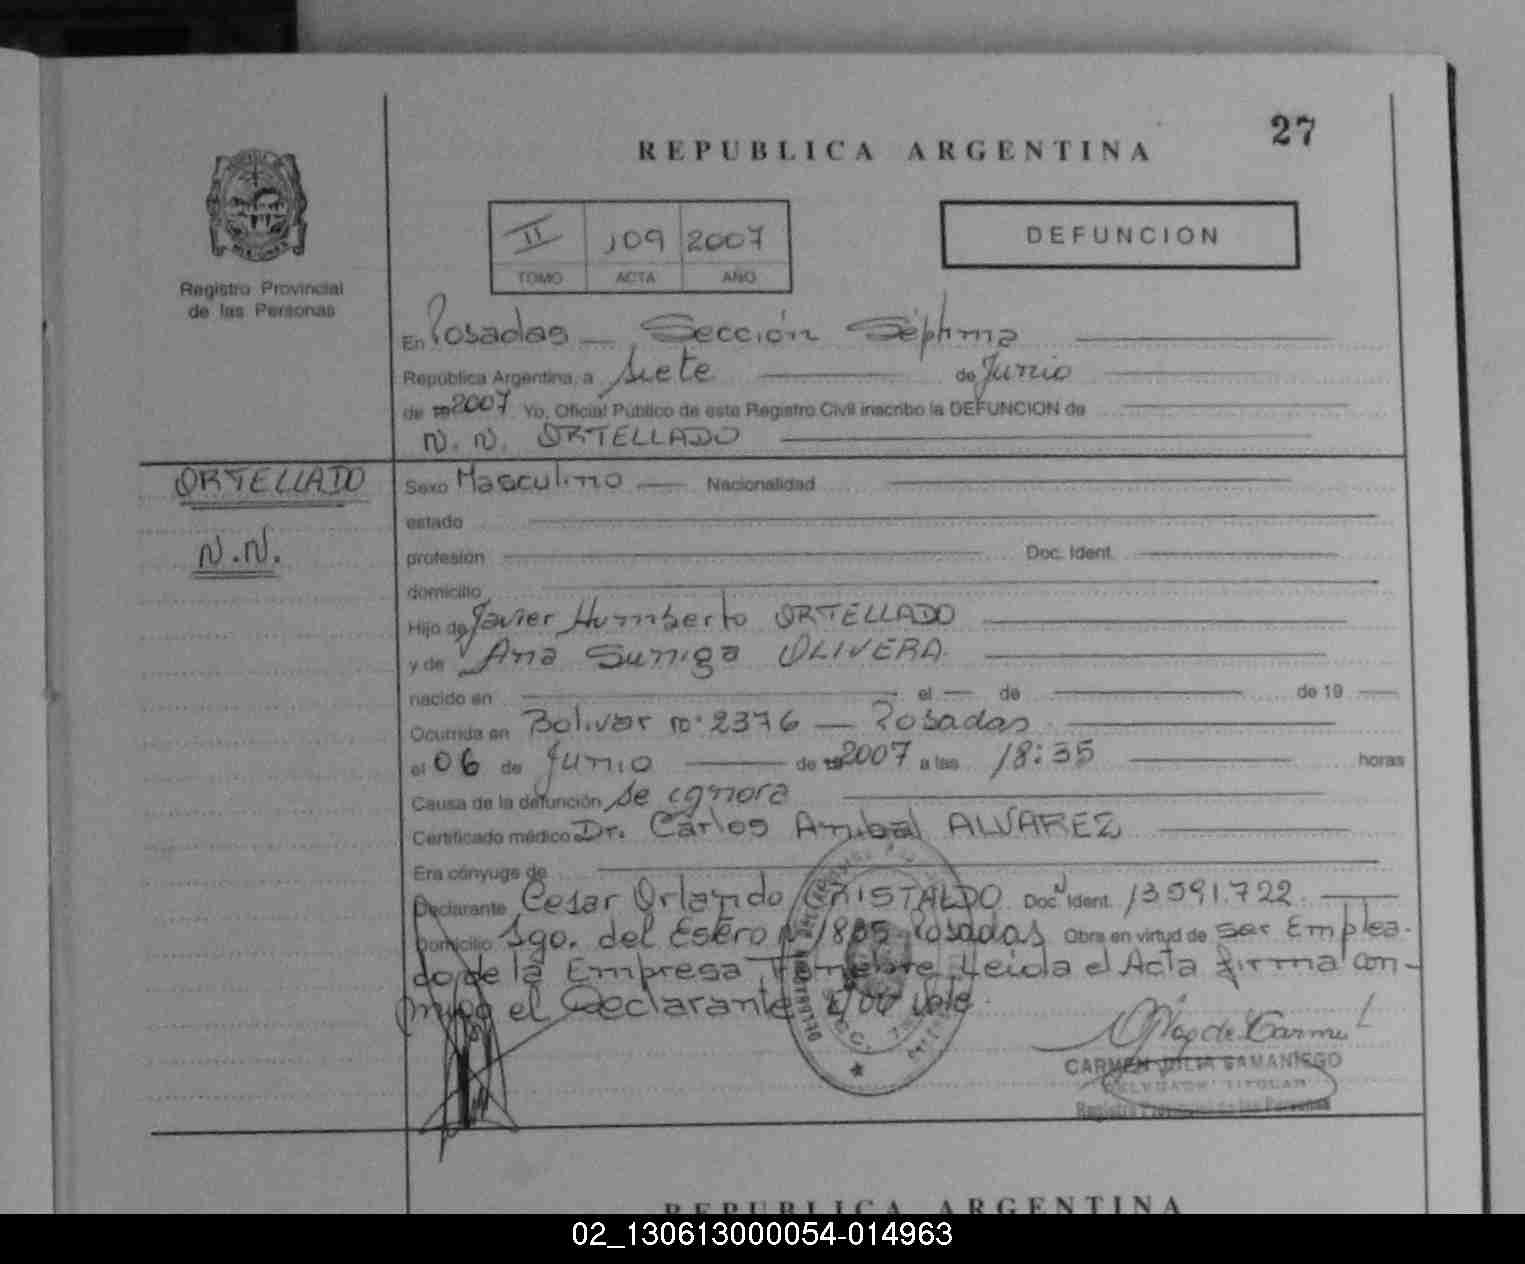 27
REPUBLICA ARGENTINA
II 109 2007
TOMO ACTA AÑO
DEFUNCION
MISIONES
Registro Provincial
de las Personas
En Posadas — Sección Séptima
República Argentina, a Siete de Junio
de 19 2007 Yo, Oficial Público de este Registro Civil inscribo la DEFUNCION de
N. N. ORTELLADO
ORTELLADO
N.N.
Sexo Masculino — Nacionalidad
estado
profesión Doc. Ident.
domicilio
Hijo de Javier Humberto ORTELLADO
y de Ana Suniga OLIVERA
nacido en el — de de 19
Ocurrida en Bolivar nº 2376 — Posadas
el 06 de Junio de 19 2007 a las 18:35 horas
Causa de la defunción se ignora
Certificado médico Dr. Carlos Anibal ALVAREZ
Era cónyuge de
Declarante Cesar Orlando CRISTALDO Doc. Ident. 13.591.722
Domicilio Sgo. del Estero Nº 1885 Posadas Obra en virtud de ser Emplea-
do de la Empresa Funebre Leida el Acta firma con-
migo el Declarante
CARMEN JULIA SAMANIEGO
DELEGADA TITULAR
Registro Provincial de las Personas
REPUBLICA ARGENTINA
02_130613000054-014963